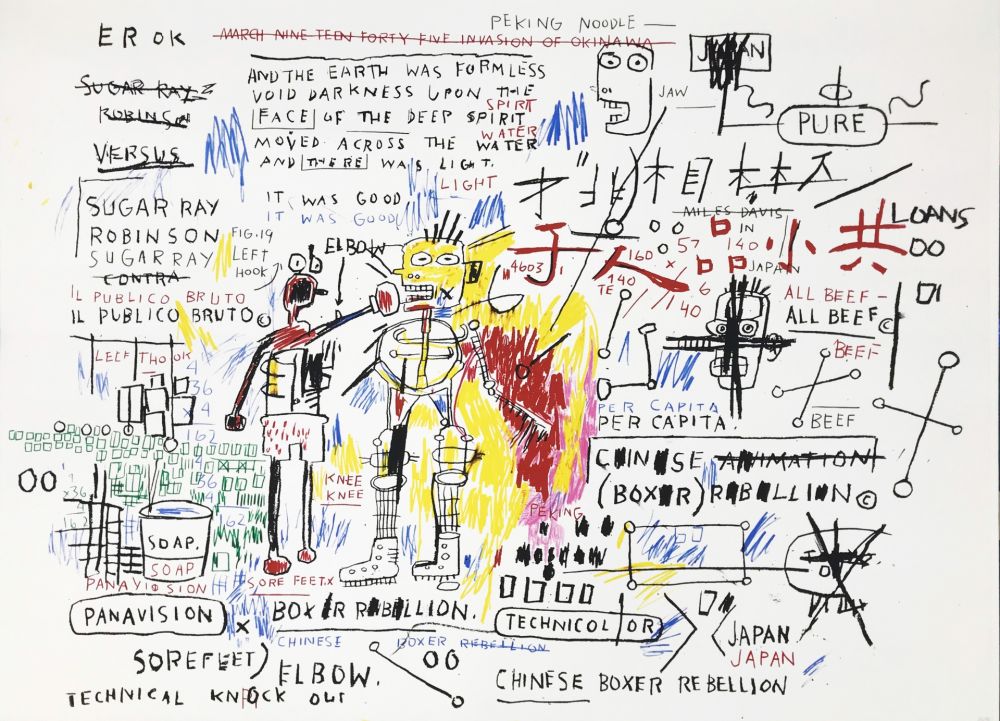 PEKING NOODLE —
ER OK
MARCH NINE TEEN FORTY FIVE INVASION OF OKINAWA
JAPAN
SUGAR RAY
ROBINSON
VERSUS
AND THE EARTH WAS FORMLESS
VOID DARKNESS UPON THE
FACE OF THE DEEP SPIRIT
SPIRIT
MOVED ACROSS THE WATER
WATER
AND THERE WAS LIGHT.
LIGHT
JAW
PURE
IT WAS GOOD
IT WAS GOOD
SUGAR RAY
ROBINSON
SUGAR RAY
CONTRA
IL PUBLICO BRUTO
IL PUBLICO BRUTO©
FIG.19
LEFT
HOOK
ELBOW
MILES DAVIS
IN
JAPAN
57
140
160
x
"4603"
140
TE
6
40
人
品
小
共
LOANS
OO
ALL BEEF —
ALL BEEF ©
BEEF
BEEF
PER CAPITA
PER CAPITA.
4
36
x 4
162
4
36
4
162
x36
OO
KNEE
KNEE
SOAP.
SOAP
CHINESE ANIMATION
(BOXER) REBELLION ©
PEKING
MOSCOW
PANAVISION
PANAVISION
SORE FEET.x
x
BOXER REBELLION.
CHINESE BOXER REBELLION
TECHNICOLOR
JAPAN
JAPAN
SOREFEET)
ELBOW.
OO
CHINESE BOXER REBELLION
TECHNICAL KNOCK OUT